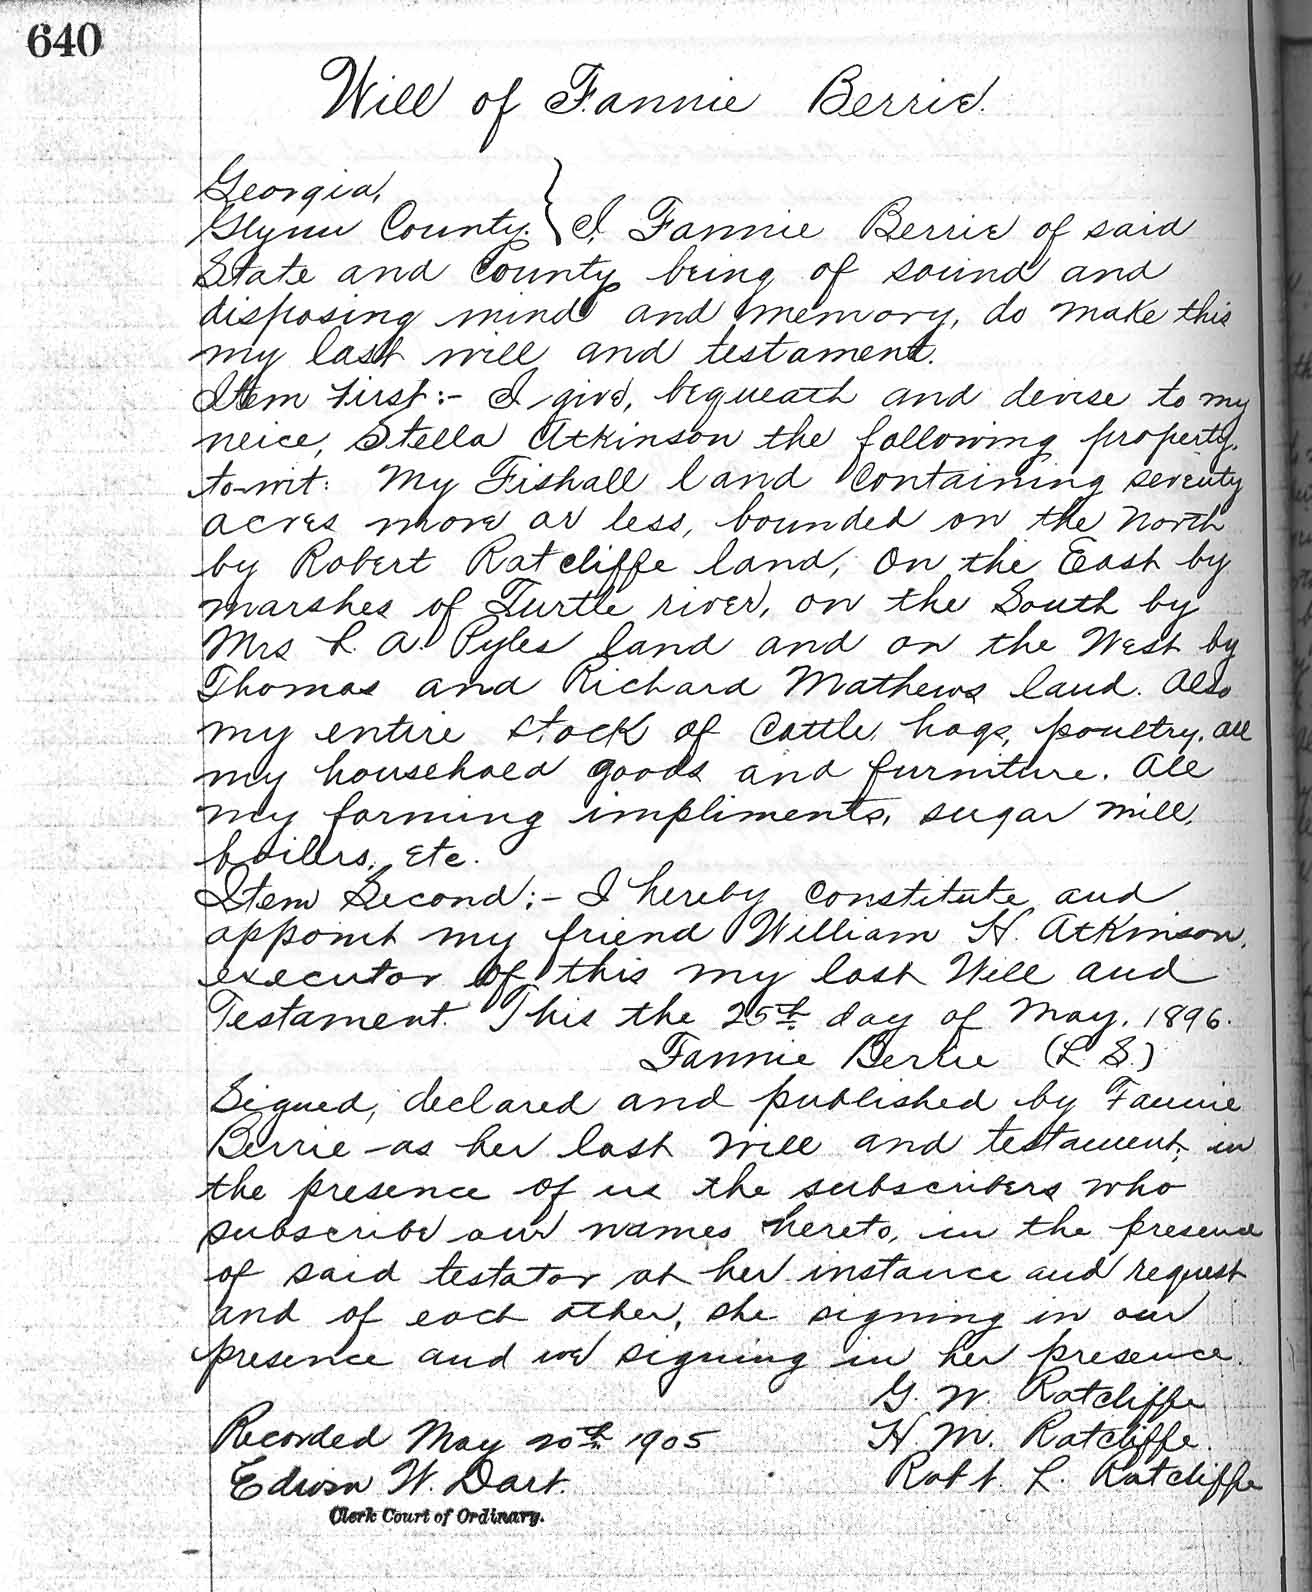 640
Will of Fannie Berrie.
Georgia,
Glynn County. } I, Fannie Berrie of said
State and County being of sound and
disposing mind and memory, do make this
my last will and testament.
Item First:- I give, bequeath and devise to my
neice, Stella Atkinson the following property,
to-wit: My Fishall land containing seventy
acres more or less, bounded on the North
by Robert Ratcliffe land, On the East by
marshes of Turtle river, on the South by
Mrs L. A. Pyles land and on the West by
Thomas and Richard Mathews land. Also
my entire stock of Cattle, hogs, poultry, all
my household goods and furniture. All
my farming impliments, sugar mill,
boilers, etc.
Item Second:- I hereby constitute and
appoint my friend William H. Atkinson,
executor of this my last Will and
Testament. This the 25th day of May, 1896.
Fannie Berrie (L. S.)
Signed, declared and published by Fannie
Berrie as her last will and testament, in
the presence of us the subscribers who
subscribe our names hereto, in the presence
of said testator at her instance and request
and of each other, she signing in our
presence and we signing in her presence.
G. W. Ratcliffe
Recorded May 20th 1905 H. M. Ratcliffe.
Edwin W. Dart. Robt. L. Ratcliffe
Clerk Court of Ordinary.